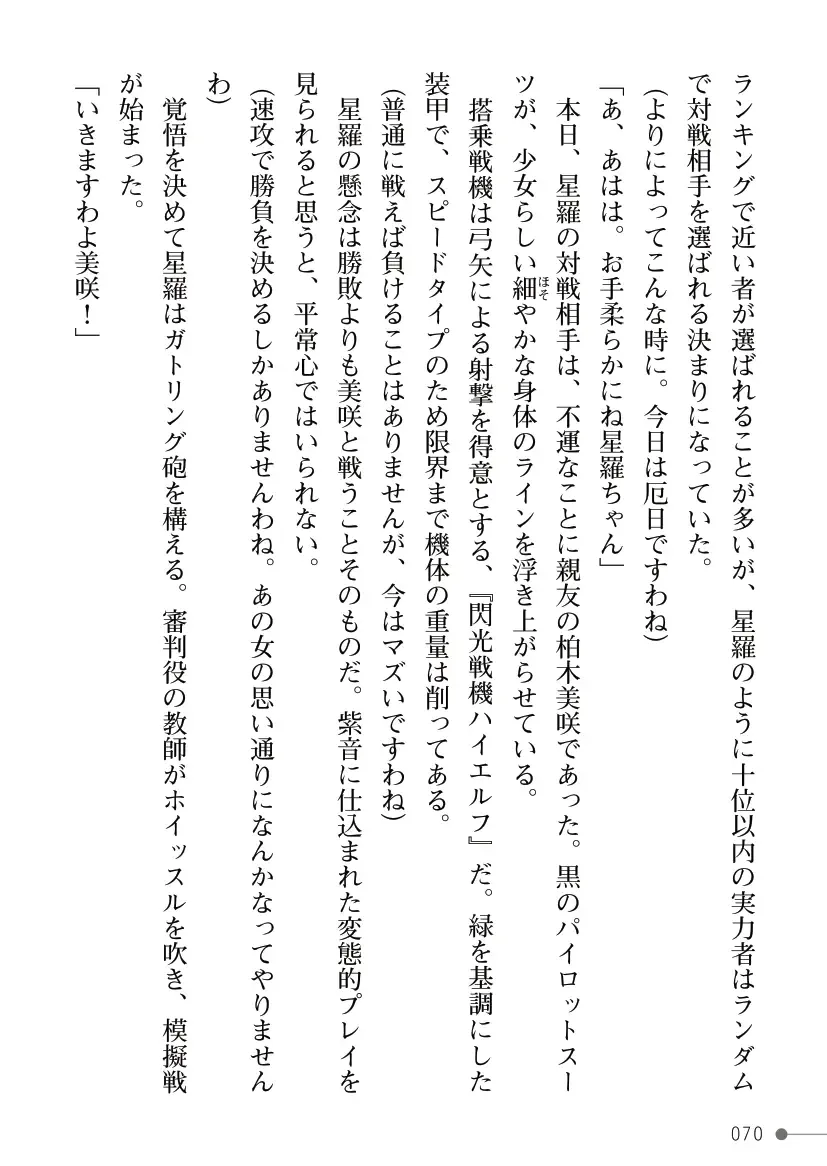 ランキングで近い者が選ばれることが多いが、星羅のように十位以内の実力者はランダム
で対戦相手を選ばれる決まりになっていた。
(よりによってこんな時に。今日は厄日ですわね)
「あ、あはは。お手柔らかにね星羅ちゃん」
　本日、星羅の対戦相手は、不運なことに親友の柏木美咲であった。黒のパイロットスー
ツが、少女らしい細やかな身体のラインを浮き上がらせている。
ほそ
　搭乗戦機は弓矢による射撃を得意とする、『閃光戦機ハイエルフ』だ。緑を基調にした
装甲で、スピードタイプのため限界まで機体の重量は削ってある。
(普通に戦えば負けることはありませんが、今はマズいですわね)
　星羅の懸念は勝敗よりも美咲と戦うことそのものだ。紫音に仕込まれた変態的プレイを
見られると思うと、平常心ではいられない。
(速攻で勝負を決めるしかありませんわね。あの女の思い通りになんかなってやりません
わ)
　覚悟を決めて星羅はガトリング砲を構える。審判役の教師がホイッスルを吹き、模擬戦
が始まった。
「いきますわよ美咲！」
070